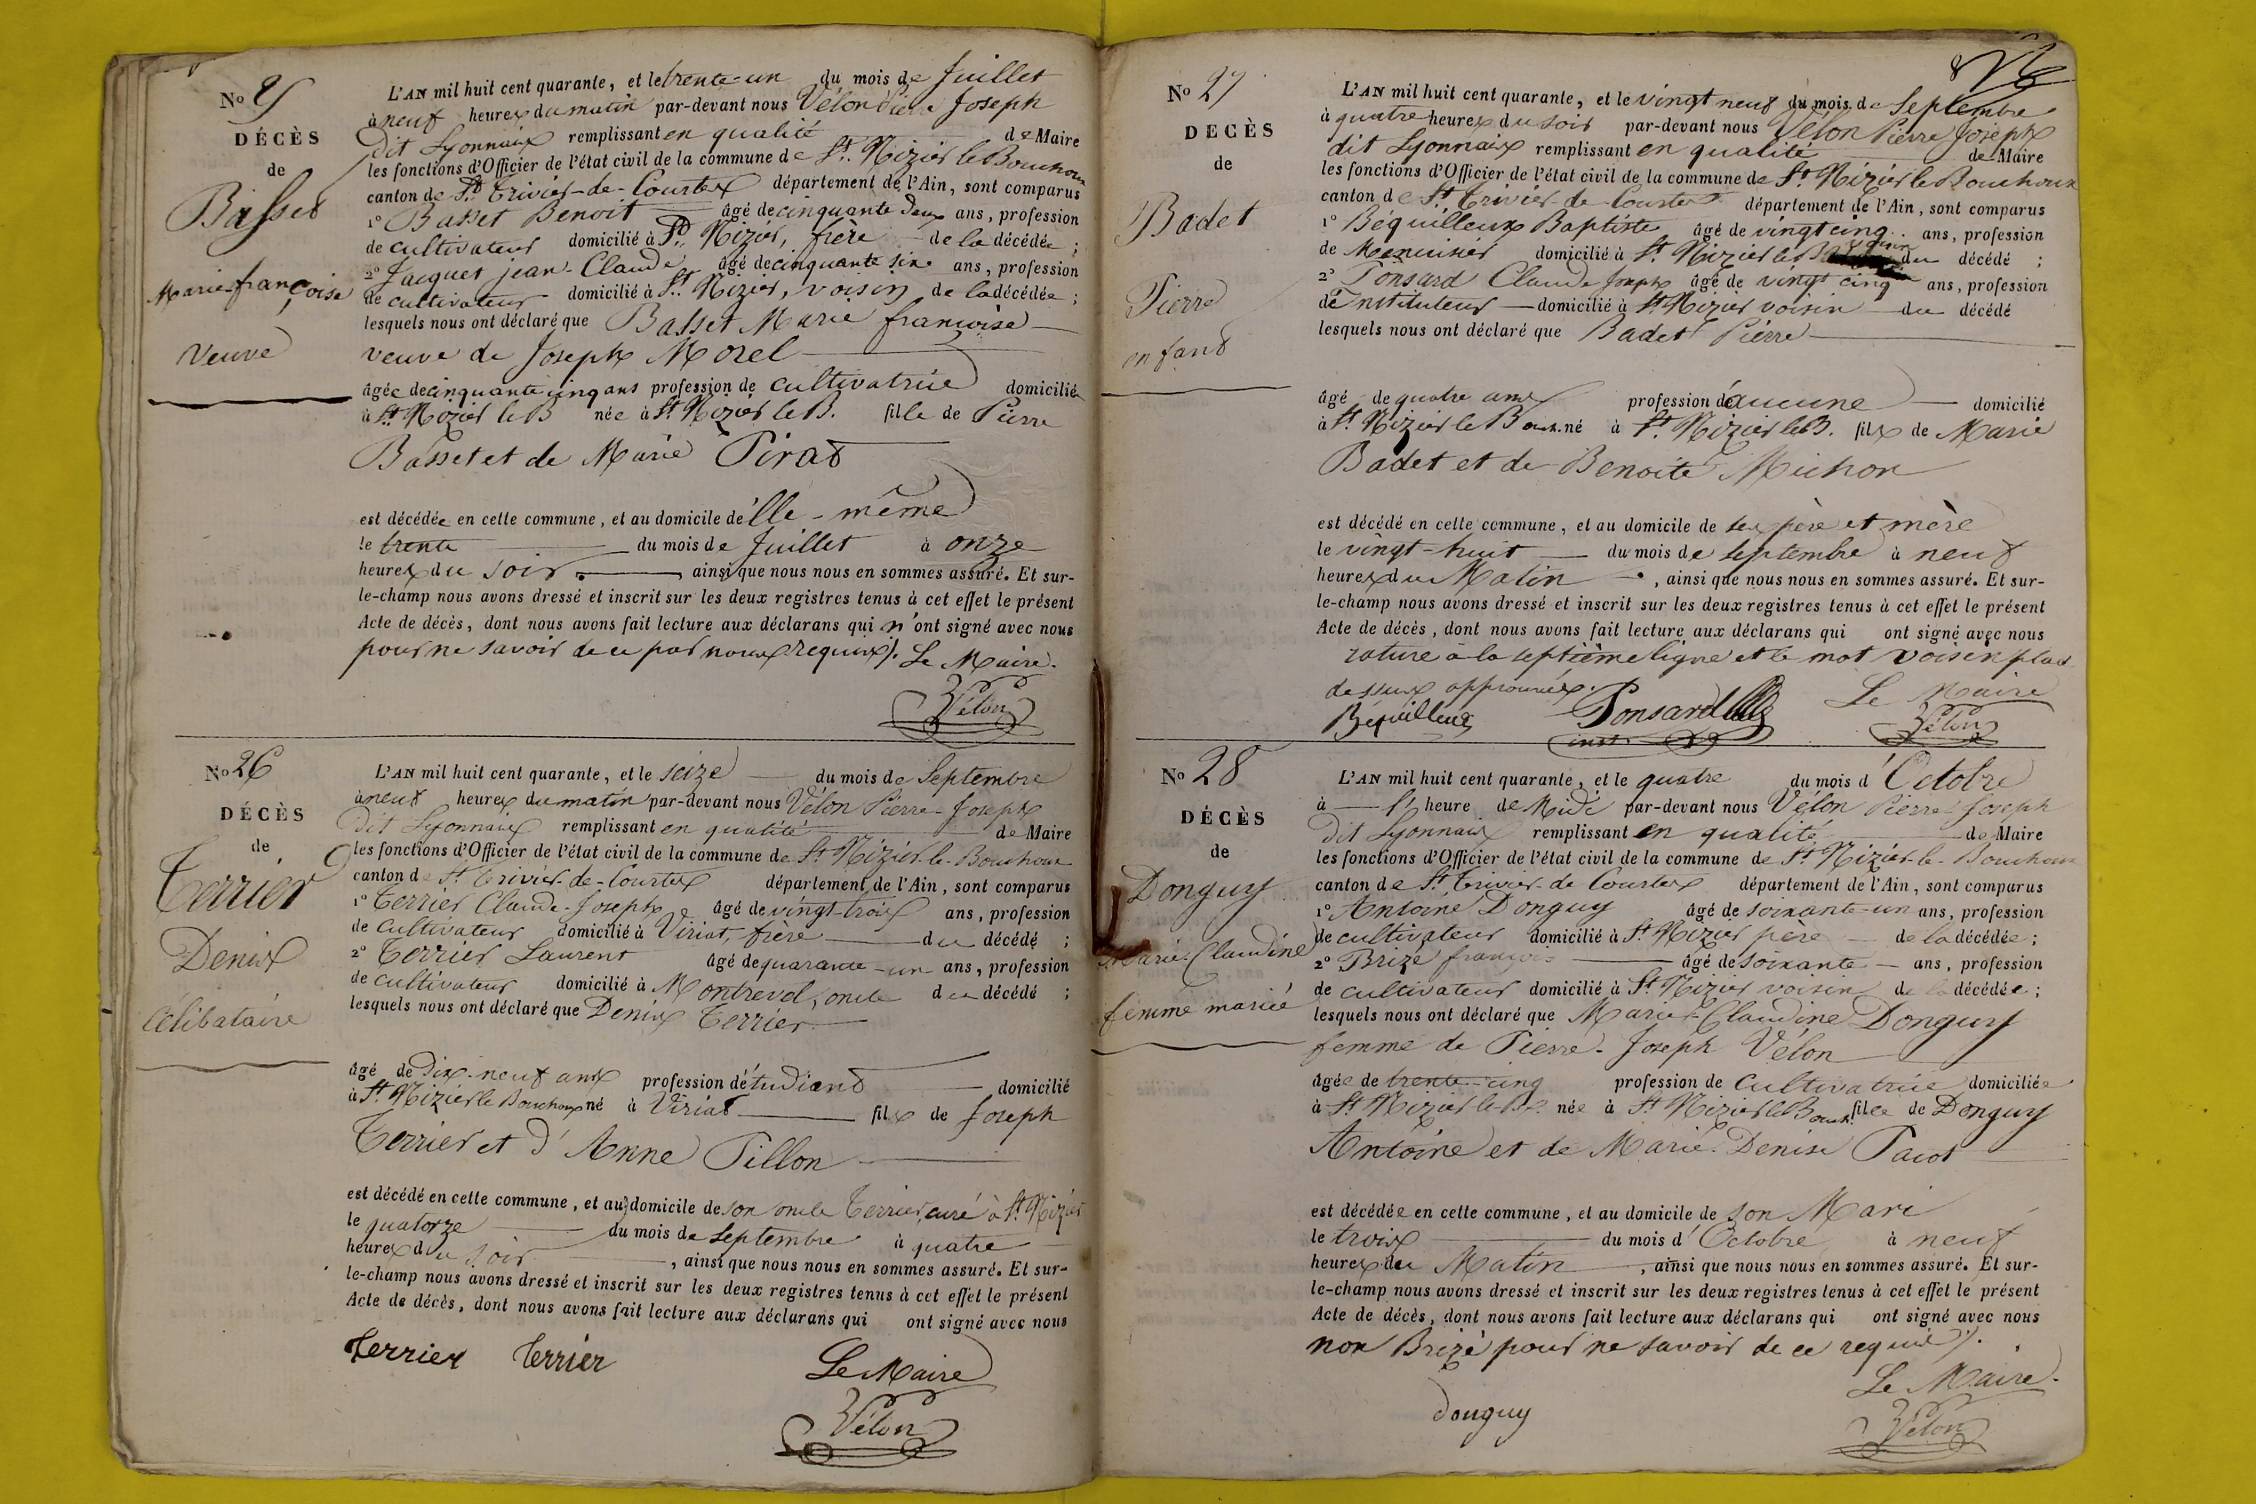 No 25
DÉCÈS
de
Basset
Marie françoise
Veuve
L'AN mil huit cent quarante, et le trente-un du mois de Juillet
à neuf heures du matin par-devant nous Vélon Pierre Joseph
dit Lyonnais remplissant en qualité de Maire
les fonctions d'Officier de l'état civil de la commune de St. Nizier le Bouchoux
canton de St. Trivier-de-Courtes département de l'Ain, sont comparus
1° Basset Benoit âgé de cinquante deux ans, profession
de cultivateur domicilié à St. Nizier, frère de la décédée ;
2° Jacquet jean-Claude âgé de cinquante six ans, profession
de cultivateur domicilié à St. Nizier, voisin de la décédée ;
lesquels nous ont déclaré que Basset Marie françoise
veuve de Joseph Morel
âgée de cinquante cinq ans profession de cultivatrice domiciliée
à St. Nizier le B née à St Nizier le B. fille de Pierre
Basset et de Marie Pirat
est décédée en cette commune, et au domicile d'elle-même
le trente du mois de Juillet à onze
heures du soir, ainsi que nous nous en sommes assuré. Et sur-
le-champ nous avons dressé et inscrit sur les deux registres tenus à cet effet le présent
Acte de décès, dont nous avons fait lecture aux déclarans qui n'ont signé avec nous
pour ne savoir de ce par nous requis). Le Maire.
Vélon
No 26
DÉCÈS
de
Terrier
Denis
Célibataire
L'AN mil huit cent quarante, et le seize du mois de Septembre
à neuf heures du matin par-devant nous Vélon Pierre-Joseph
Dit Lyonnais remplissant en qualité de Maire
les fonctions d'Officier de l'état civil de la commune de St Nizier-le-Bouchoux
canton de St Trivier-de-Courtes département de l'Ain, sont comparus
1° Terrier Claude-Joseph âgé de vingt-trois ans, profession
de Cultivateur domicilié à Viriat, frère du décédé ;
2° Terrier Laurent âgé de quarante-un ans, profession
de cultivateur domicilié à Montrevel, oncle du décédé ;
lesquels nous ont déclaré que Denis Terrier
âgé de Dix-neuf ans profession d'étudiant domicilié
à St. Nizier le Bouchoux né à Viriat fils de Joseph
Terrier et d'Anne Pillon
est décédé en cette commune, et au domicile de son oncle Terrier, curé à St. Nizier
le quatorze du mois de Septembre à quatre
heures du soir, ainsi que nous nous en sommes assuré. Et sur-
le-champ nous avons dressé et inscrit sur les deux registres tenus à cet effet le présent
Acte de décès, dont nous avons fait lecture aux déclarans qui ont signé avec nous
terrier terrier Le Maire
Vélon
8
No 27
DÉCÈS
de
Badet
Pierre
enfant
L'AN mil huit cent quarante, et le vingt neuf du mois de Septembre
à quatre heures du soir par-devant nous Vélon Pierre Joseph
dit Lyonnais remplissant en qualité de Maire
les fonctions d'Officier de l'état civil de la commune de St Nizier le Bouchoux
canton de St. Trivier-de-Courtes département de l'Ain, sont comparus
1° Béquilleux Baptiste âgé de vingt cinq ans, profession
de Menuisier domicilié à St. Nizier le B voisin du décédé ;
2° Ponsard Claude Joseph âgé de vingt cinq ans, profession
d'Instituteur domicilié à St Nizier voisin du décédé
lesquels nous ont déclaré que Badet Pierre
âgé de quatre ans profession d'aucune domicilié
à St. Nizier le Bouch. né à St. Nizier le B. fils de Marie
Badet et de Benoite Michon
est décédé en cette commune, et au domicile de ses père et mère
le vingt-huit du mois de septembre à neuf
heures du Matin, ainsi que nous nous en sommes assuré. Et sur-
le-champ nous avons dressé et inscrit sur les deux registres tenus à cet effet le présent
Acte de décès, dont nous avons fait lecture aux déclarans qui ont signé avec nous
rature à la septième ligne et le mot voisin placé
dessus approuvés. Le Maire
Béquilleux Ponsard Vélon
inst.
No 28
DÉCÈS
de
Donguy
Marie-Claudine
femme mariée
L'AN mil huit cent quarante, et le quatre du mois d'Octobre
à l' heure de Midi par-devant nous Vélon Pierre Joseph
Dit Lyonnais remplissant en qualité de Maire
les fonctions d'Officier de l'état civil de la commune de St Nizier-le-Bouchoux
canton de St. Trivier-de Courtes département de l'Ain, sont comparus
1° Antoine Donguy âgé de soixante-un ans, profession
de cultivateur domicilié à St Nizier père de la décédée ;
2° Brizé françois âgé de soixante ans, profession
de cultivateur domicilié à St. Nizier voisin de la décédée ;
lesquels nous ont déclaré que Marie-Claudine Donguy
femme de Pierre-Joseph Vélon
âgée de trente-cinq profession de cultivatrice domiciliée
à St Nizier-le-B. née à St. Nizier le Bouch. fille de Donguy
Antoine et de Marie-Denise Pacot
est décédée en cette commune, et au domicile de son Mari
le trois du mois d'Octobre à neuf
heures du Matin, ainsi que nous nous en sommes assuré. Et sur-
le-champ nous avons dressé et inscrit sur les deux registres tenus à cet effet le présent
Acte de décès, dont nous avons fait lecture aux déclarans qui ont signé avec nous
non Brizé pour ne savoir de ce requis).
Le Maire.
donguy Vélon